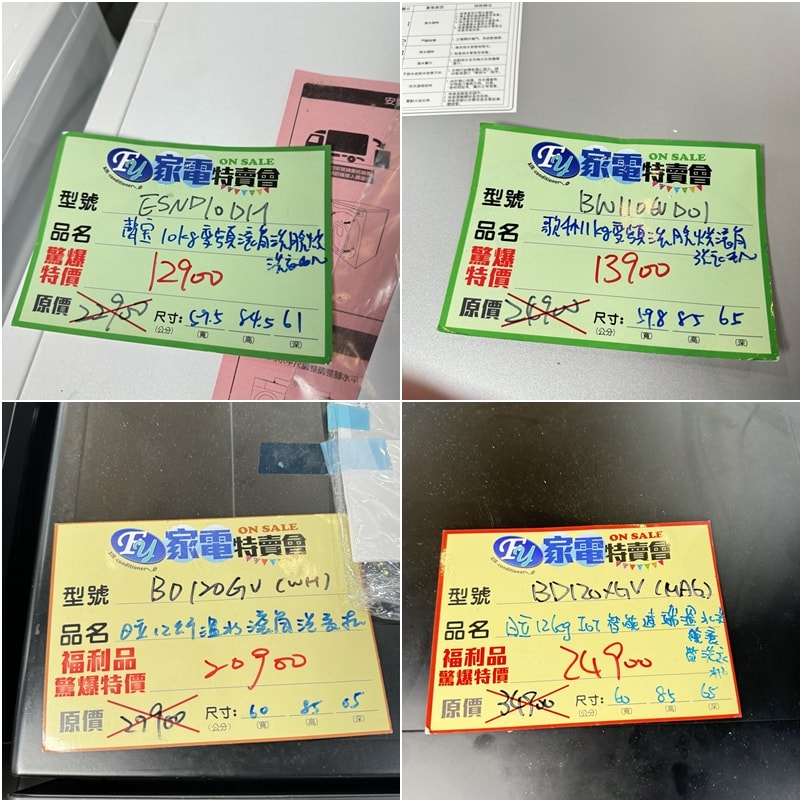 安
Fy 家電特賣會 ON SALE
Air conditioner
型號 ESND10DH
品名 聲寶10kg變頻滾筒洗脫烘
洗衣機
驚爆特價 12900
原價 22900 尺寸: 59.5 84.5 61
(公分) (寬) (高) (深)
Fy 家電特賣會 ON SALE
Air conditioner
型號 BN110GVD01
品名 歌林11kg變頻洗脫烘滾筒
洗衣機
驚爆特價 13900
原價 26900 尺寸: 59.8 85 65
(公分) (寬) (高) (深)
Fy 家電特賣會 ON SALE
Air conditioner
型號 BD120GV (WH)
品名 日立12公斤溫水滾筒洗衣機
福利品
驚爆特價 20900
原價 29900 尺寸: 60 85 65
(公分) (寬) (高) (深)
Fy 家電特賣會 ON SALE
Air conditioner
型號 BD120XGV (MAG)
品名 日立12kg IoT智能遠端溫水
筒洗衣
機
福利品
驚爆特價 24900
原價 34900 尺寸: 60 85 65
(公分) (寬) (高) (深)